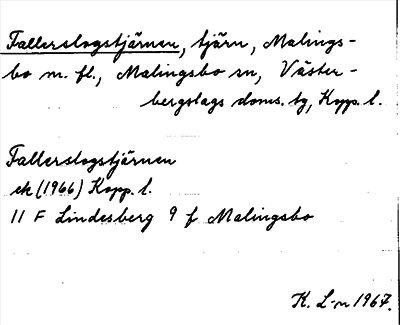 Fallerslogstjärnen, tjärn, Malings-
bo m. fl., Malingsbo sn, Väster-
bergslags doms. tg, Kopp. l.
Fallerslogstjärnen
ek (1966) Kopp. l.
11 F Lindesberg 9 f Malingsbo
K. L-n 1967.